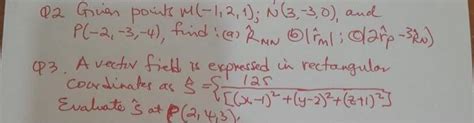 Q2 Given points M(-1, 2, 1); N(3, -3, 0), and
P(-2, -3, -4), find: (a) R̂NN (b) |r̂M|; (c) |2r̂P - 3r̂N)
Q3. A vector field is expressed in rectangular
coordinates as Ŝ = { 125 / [(x-1)² + (y-2)² + (z+1)²]
Evaluate Ŝ at P(2, 4, 3).